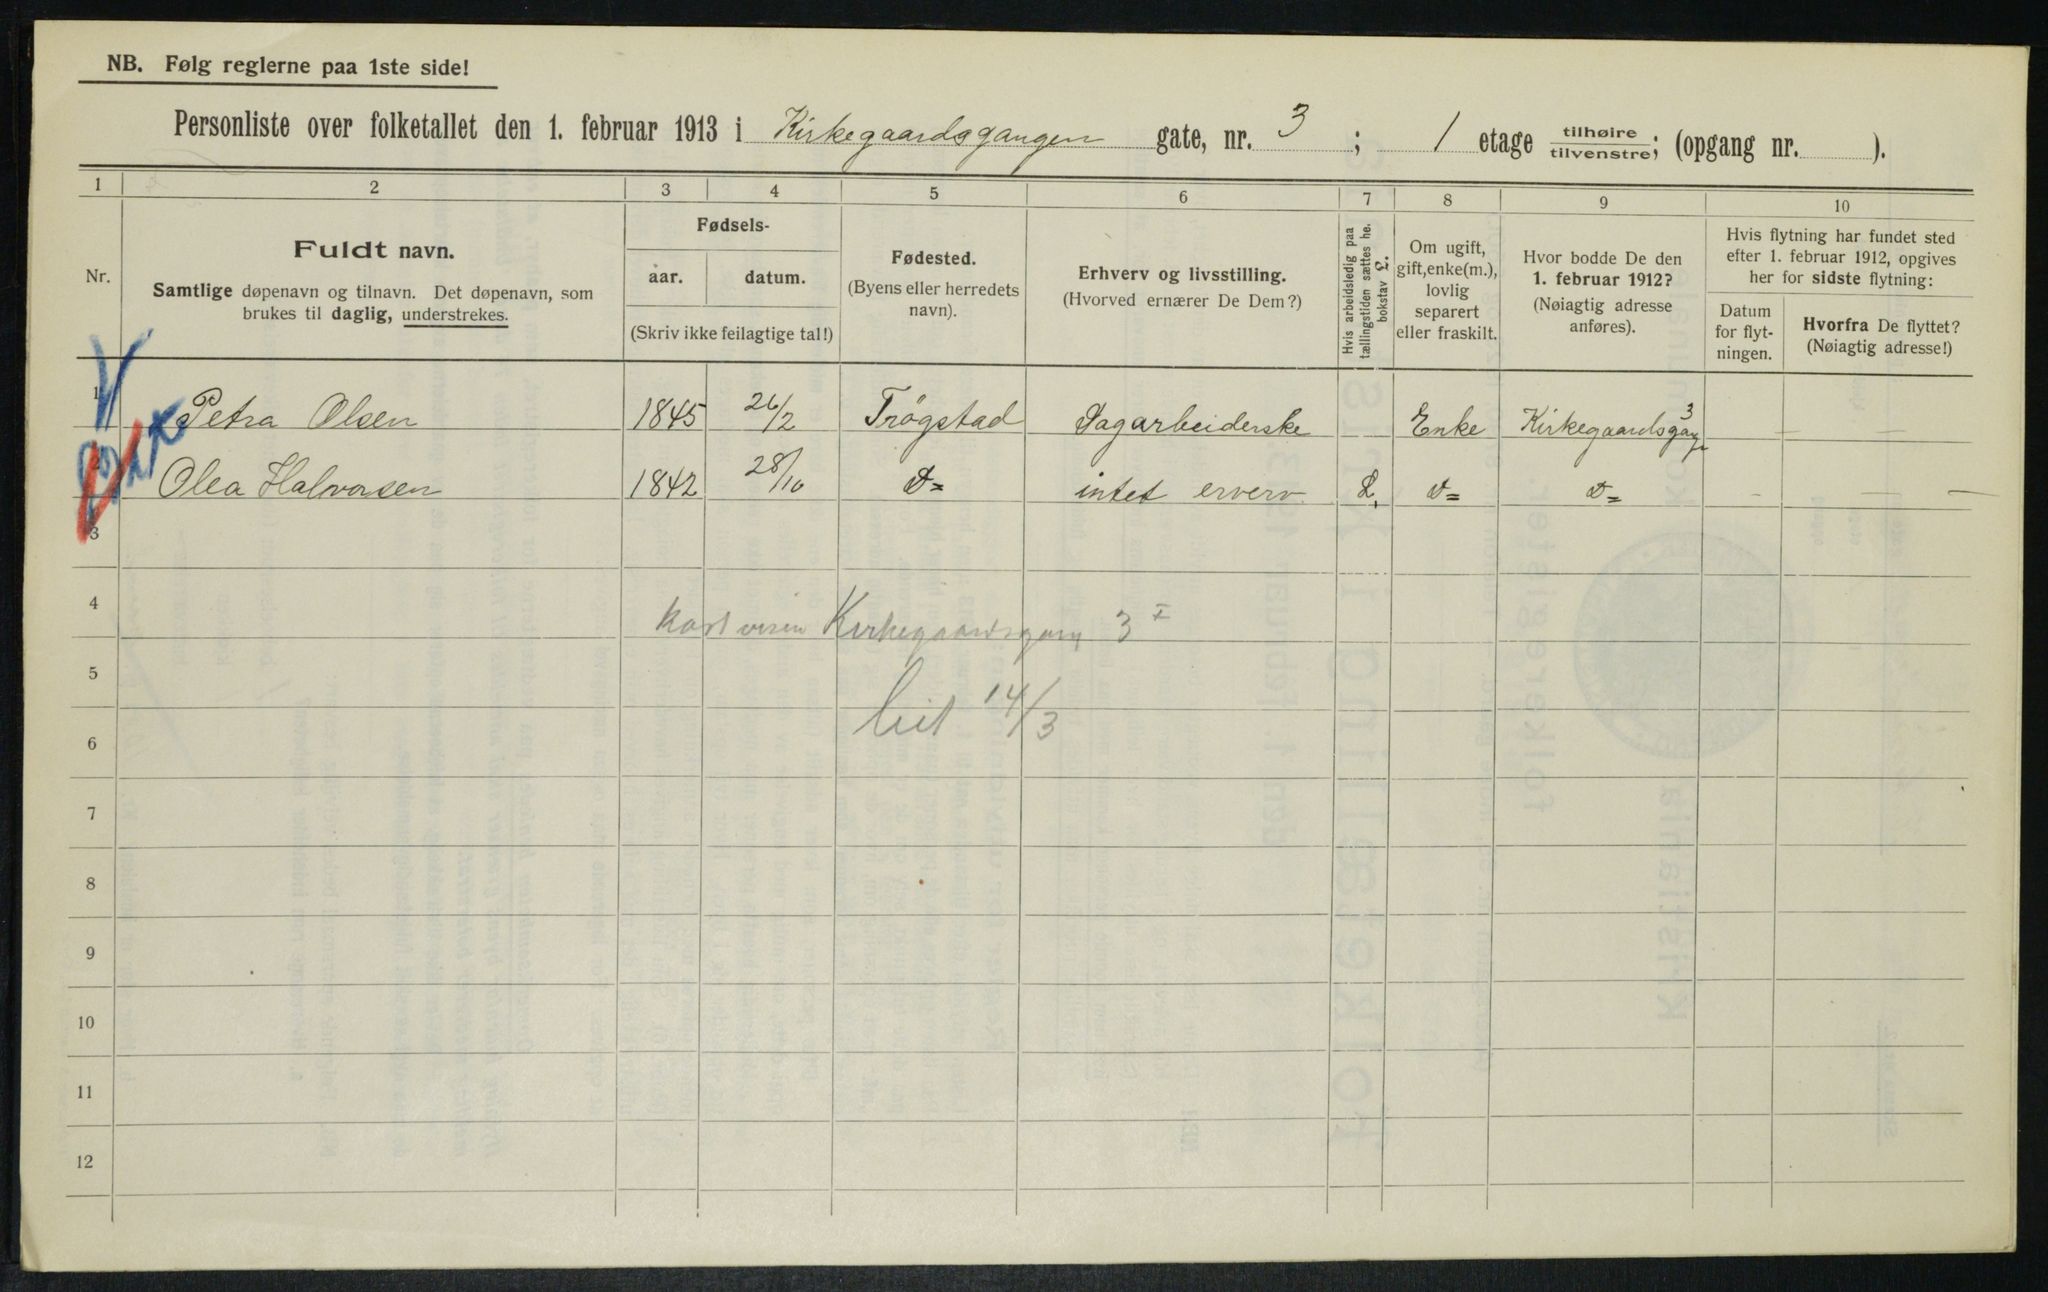 NB. Følg reglerne paa 1ste side!
Personliste over folketallet den 1. februar 1913 i Kirkegaardsgangen gate, nr. 3 ; 1 etage tilhøire tilvenstre; (opgang nr. ).
1 2 3 4 5 6 7 8 9 10
Nr.
Fuldt navn.
Samtlige døpenavn og tilnavn. Det døpenavn, som
brukes til daglig, understrekes.
Fødsels-
aar. datum.
(Skriv ikke feilagtige tal!)
Fødested.
(Byens eller herredets
navn).
Erhverv og livsstilling.
(Hvorved ernærer De Dem?)
Hvis arbeidsledig paa
tællingstiden sættes he.
bokstav L.
Om ugift,
gift, enke(m.),
lovlig
separert
eller fraskilt.
Hvor bodde De den
1. februar 1912?
(Nøiagtig adresse
anføres).
Hvis flytning har fundet sted
efter 1. februar 1912, opgives
her for sidste flytning:
Datum
for flyt-
ningen.
Hvorfra De flyttet?
(Nøiagtig adresse!)
1 Petra Olsen 1845 26/2 Trøgstad Dagarbeiderske Enke Kirkegaardsgang 3 — —
2 Olea Halvorsen 1842 28/10 d= intet erverv L. d= d= — — —
3
4
kort Kirkegaardsgang 3 I
5
14/3
6
7
8
9
10
11
12